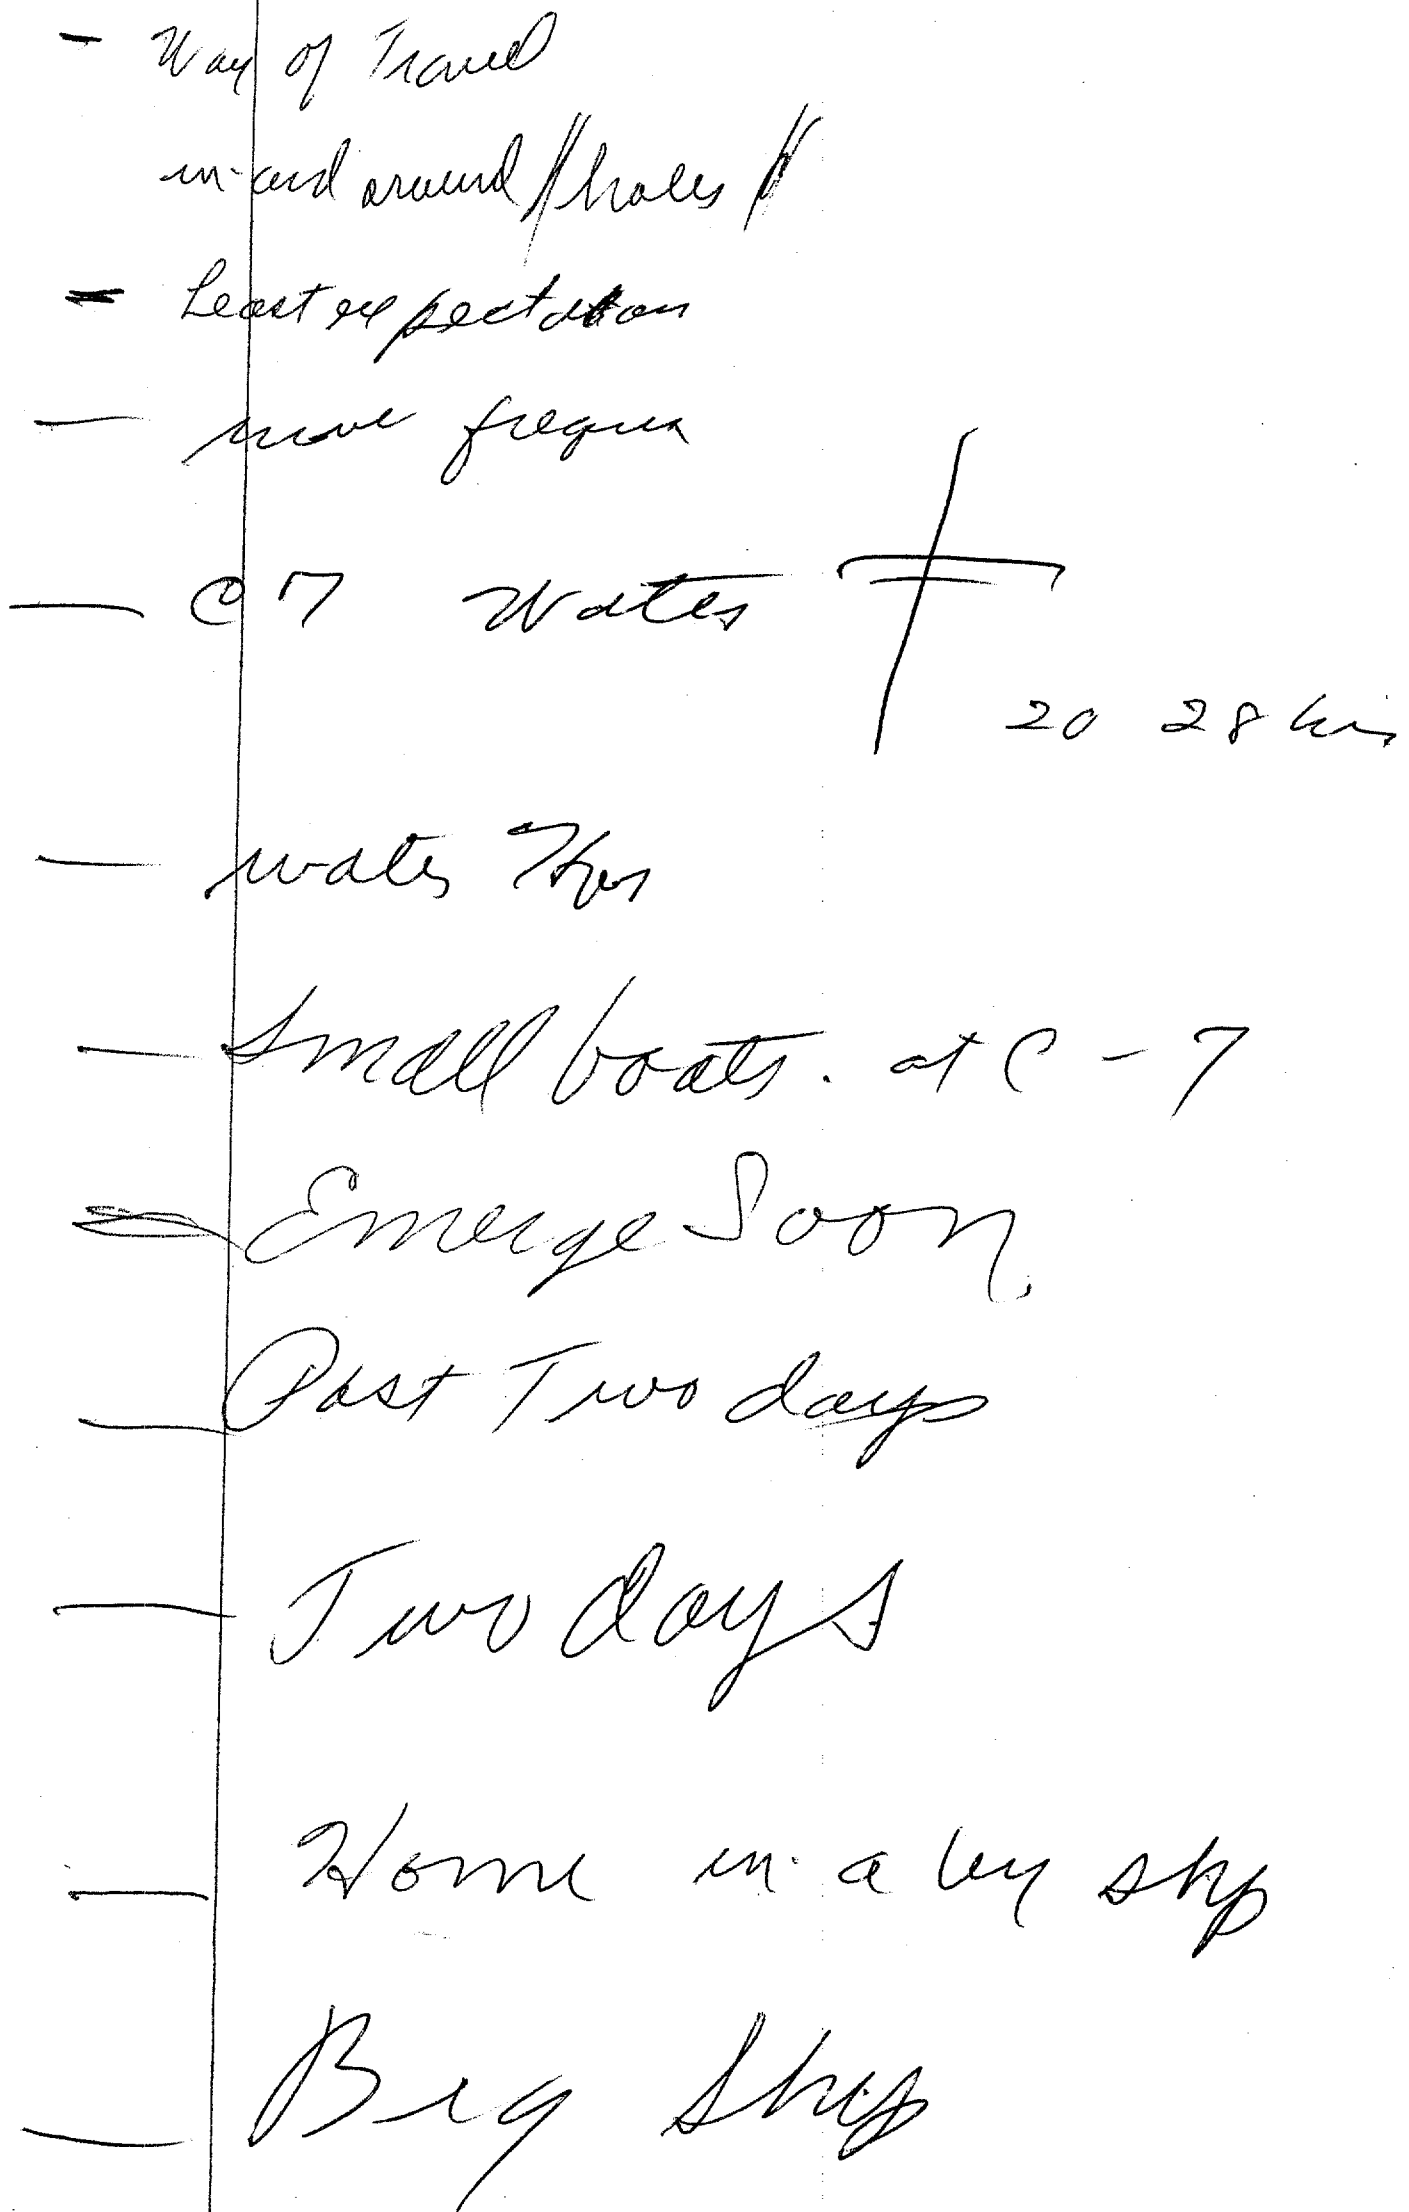 - Way of Travel
in-and around // holes //
- Least expectation
- move freque
- C 7 Water
20 28 
- water
- Small boats. at C - 7
- Emerge Soon.
- Past Two days
- Two days
- Home in a big ship
- Big Ship